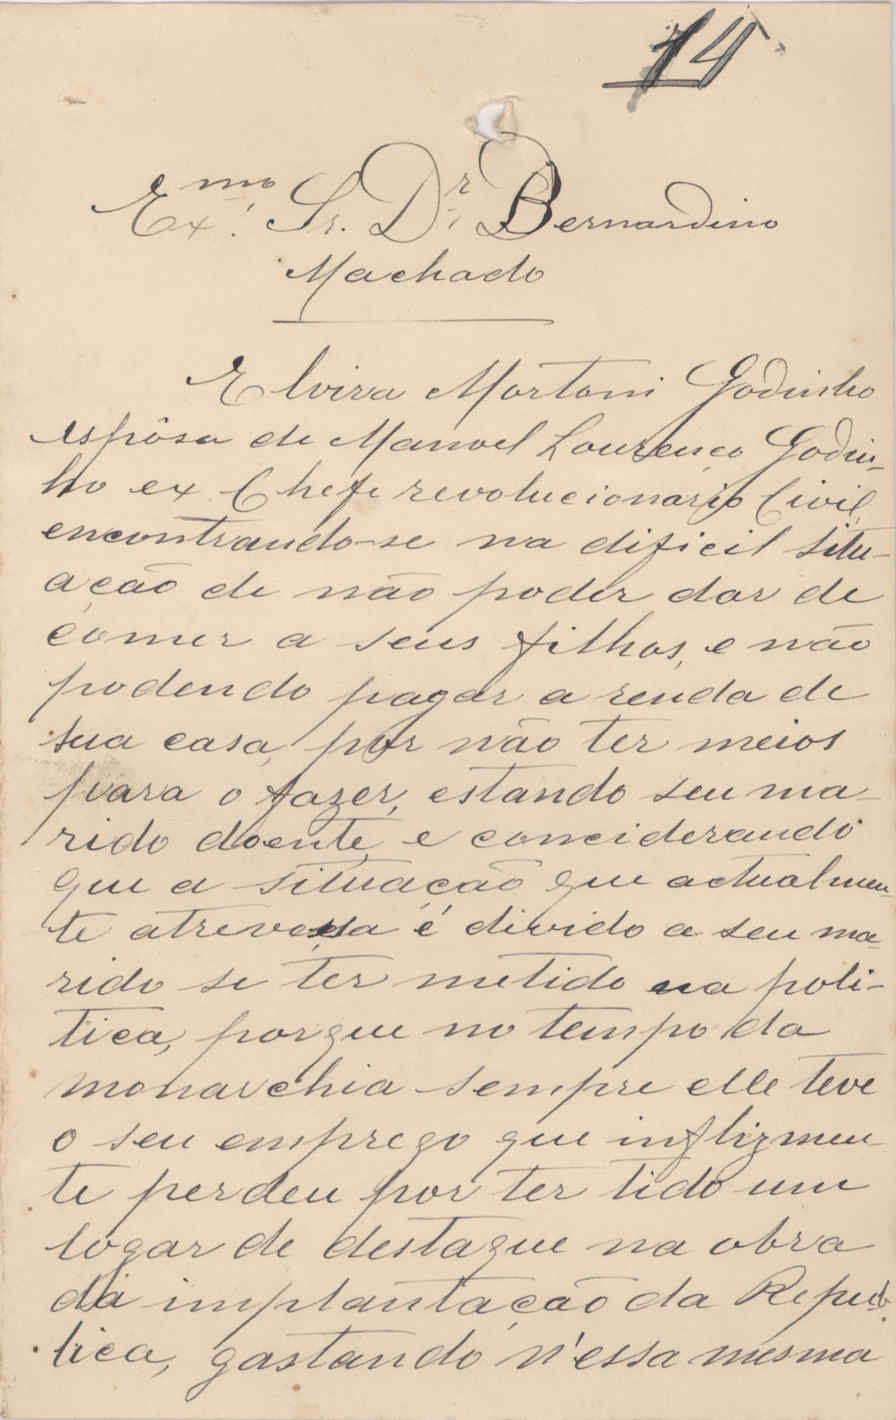 14
Exmo. Sr. Dr. Bernardino
Machado
Elvira Mortani Godinho
espôsa de Manoel Lourenço Godin-
ho ex Chefe revolucionario Civil,
encontrando-se na dificil situ-
ação de não poder dar de
comer a seus filhos, e não
podendo pagar a renda de
sua casa, por não ter meios
para o fazer, estando seu ma-
rido doente, e conciderando
que a situação que actualmen-
te atrevessa é divido a seu ma-
rido se ter metido na poli-
tica, porque no tempo da
monarchia sempre elle teve
o seu emprego que inflizmen-
te perdeu por ter tido um
logar de destaque na obra
da implantação da Repub-
lica, gastando n'essa mesma